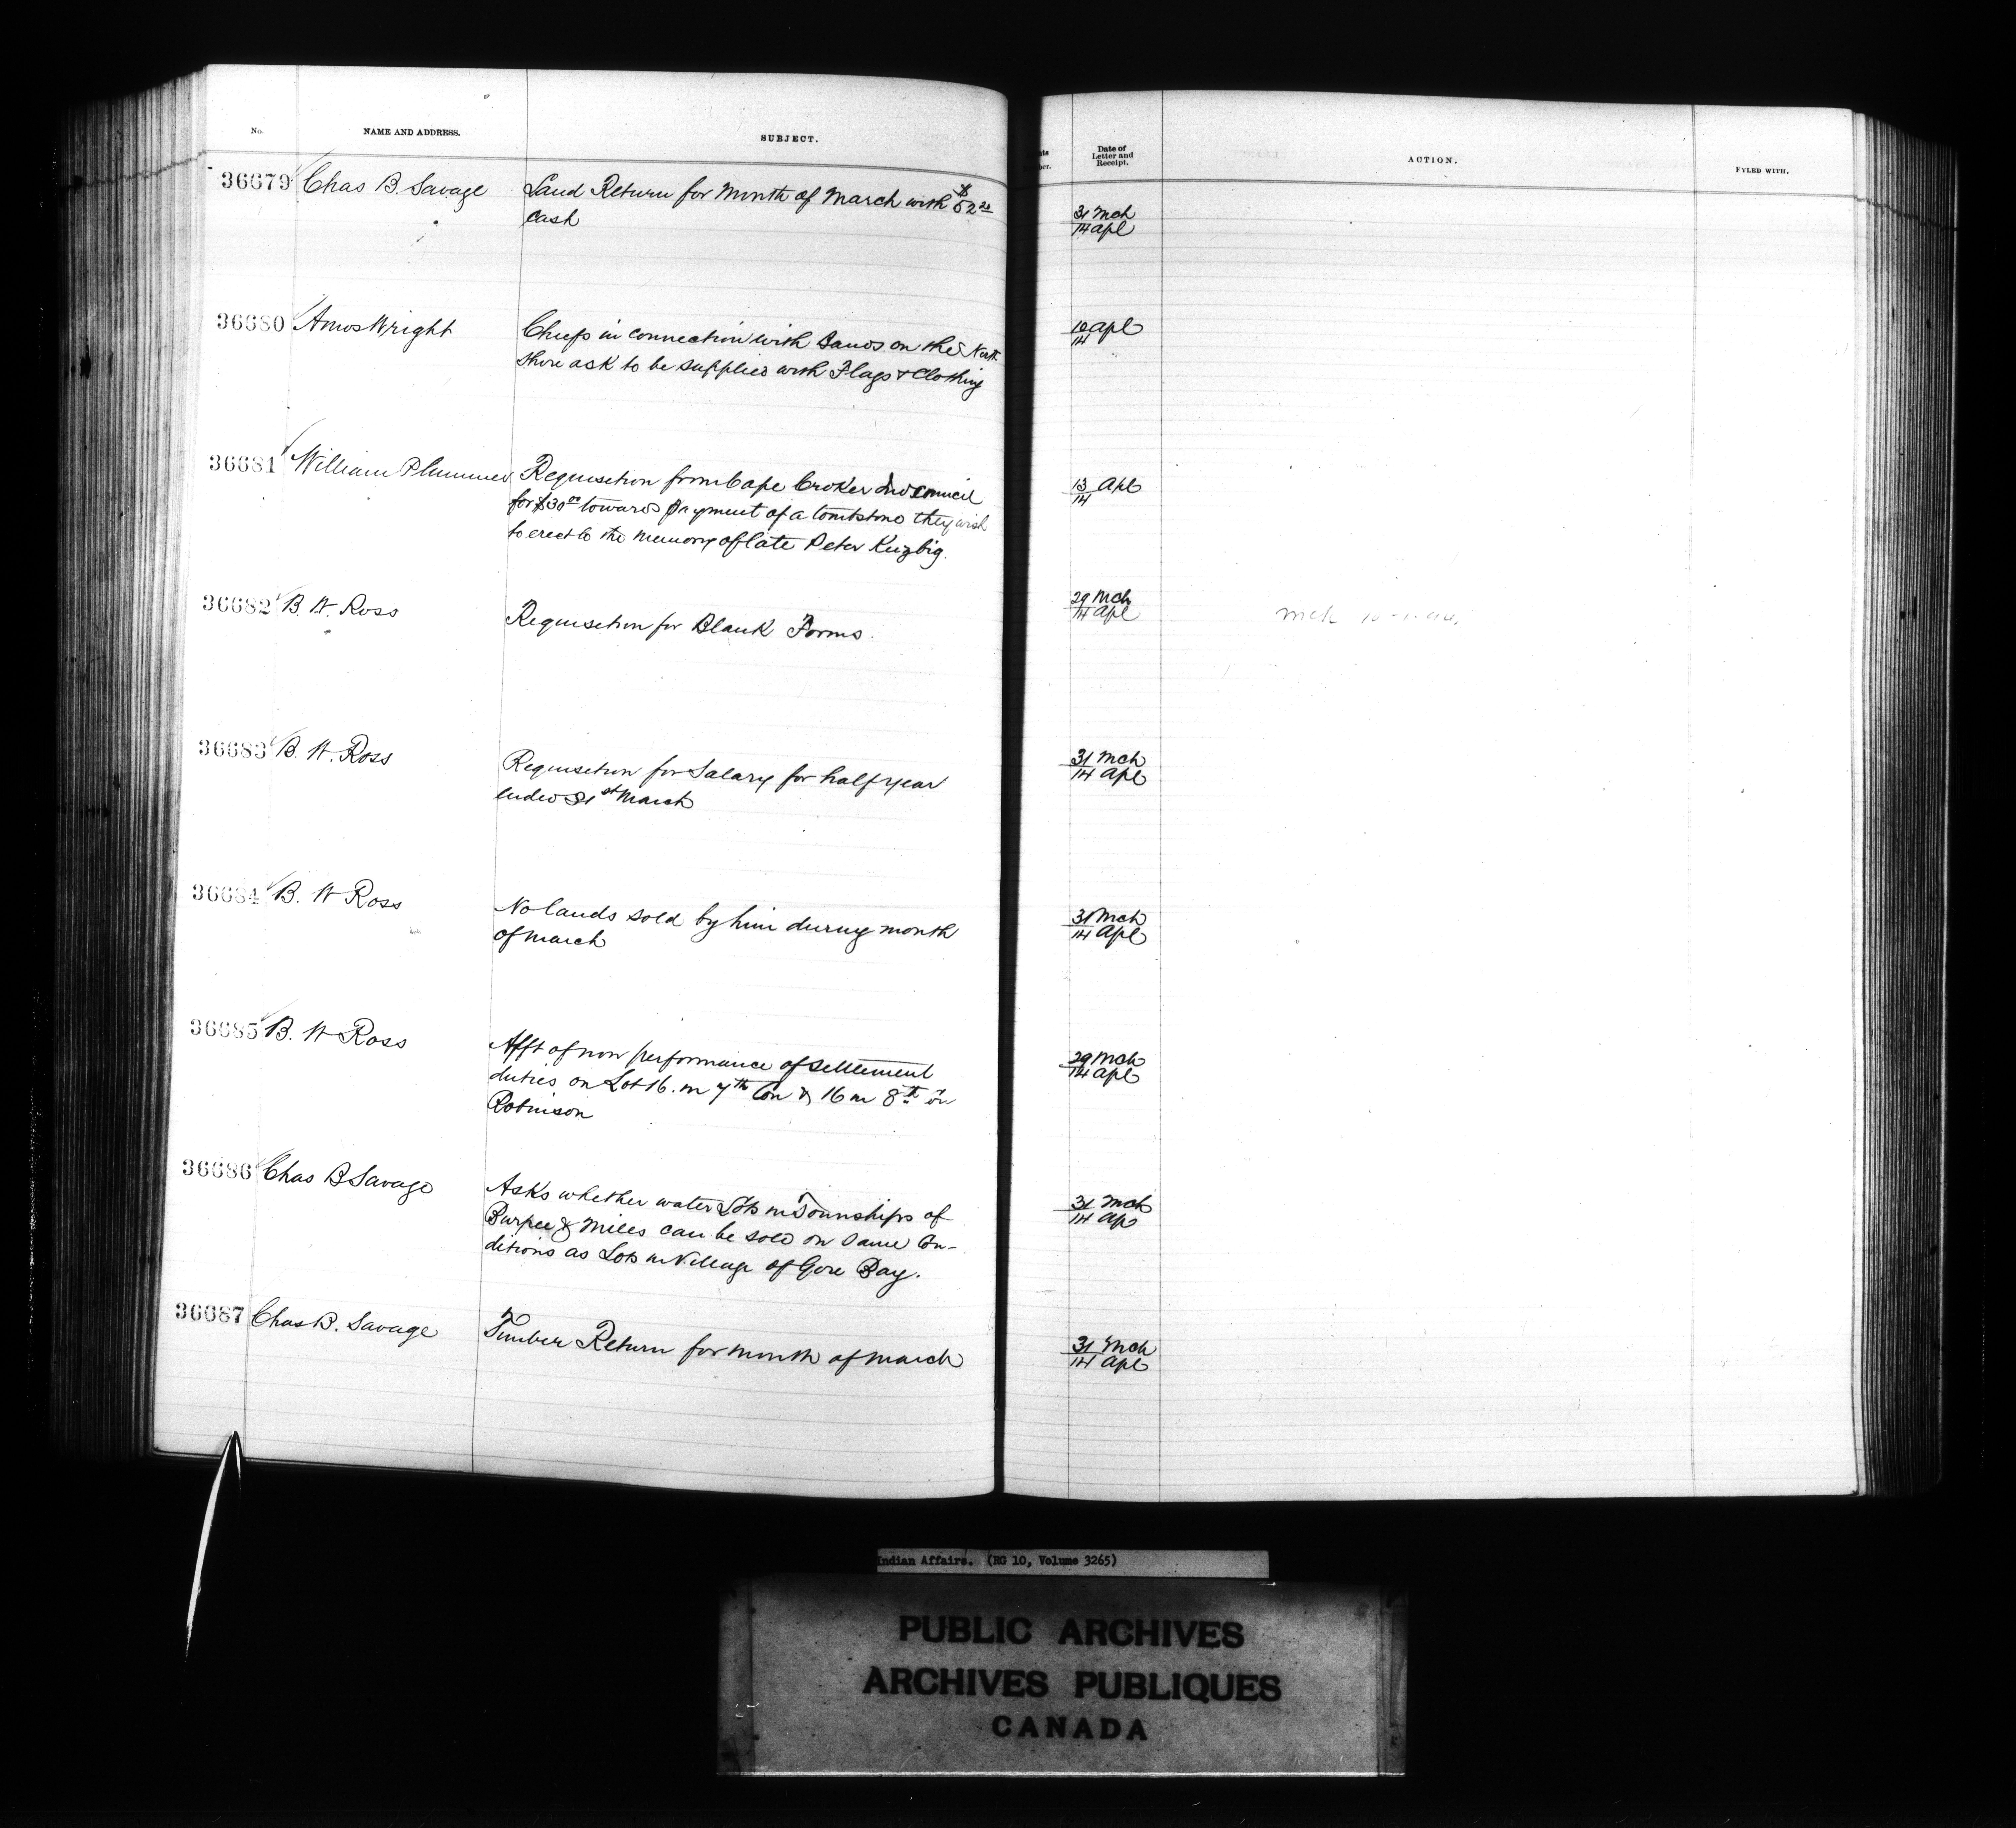 No. NAME AND ADDRESS. SUBJECT. Date of Letter and Receipt. ACTION. FYLED WITH.
36679 Chas B. Savage Land Return for Month of March with $52 31 Mch
cash 14 Apl
36680 Amos Wright Chiefs in connection with Bands on the North 10 Apl
Shore ask to be supplied with Flags & Clothing 14
36681 William Plummer Requisition from Cape Croker Ind Council 13 Apl
for $30 towards payment of a tombstone they wish 14
to erect to the memory of late Peter
36682 B. W. Ross Requisition for Blank Forms. 29 Mch
14 Apl
36683 B. W. Ross Requisition for Salary for half year 31 Mch
ended 31st March 14 Apl
36684 B. W Ross No lands sold by him during month 31 Mch
of March 14 Apl
36685 B. W Ross Afft of non performance of settlement 29 Mch
duties on Lot 16. in 7th Con & 16 in 8th in 14 Apl
Robinson
36686 Chas B Savage Asks whether water Lots in Townships of 31 Mch
Burpee & Mills can be sold on same Con- 14 Ap
ditions as Lots in Village of Gore Bay.
36687 Chas B. Savage Timber Return for month of March 31 Mch
14 Apl
Indian Affairs. (RG 10, Volume 3265)
PUBLIC ARCHIVES
ARCHIVES PUBLIQUES
CANADA